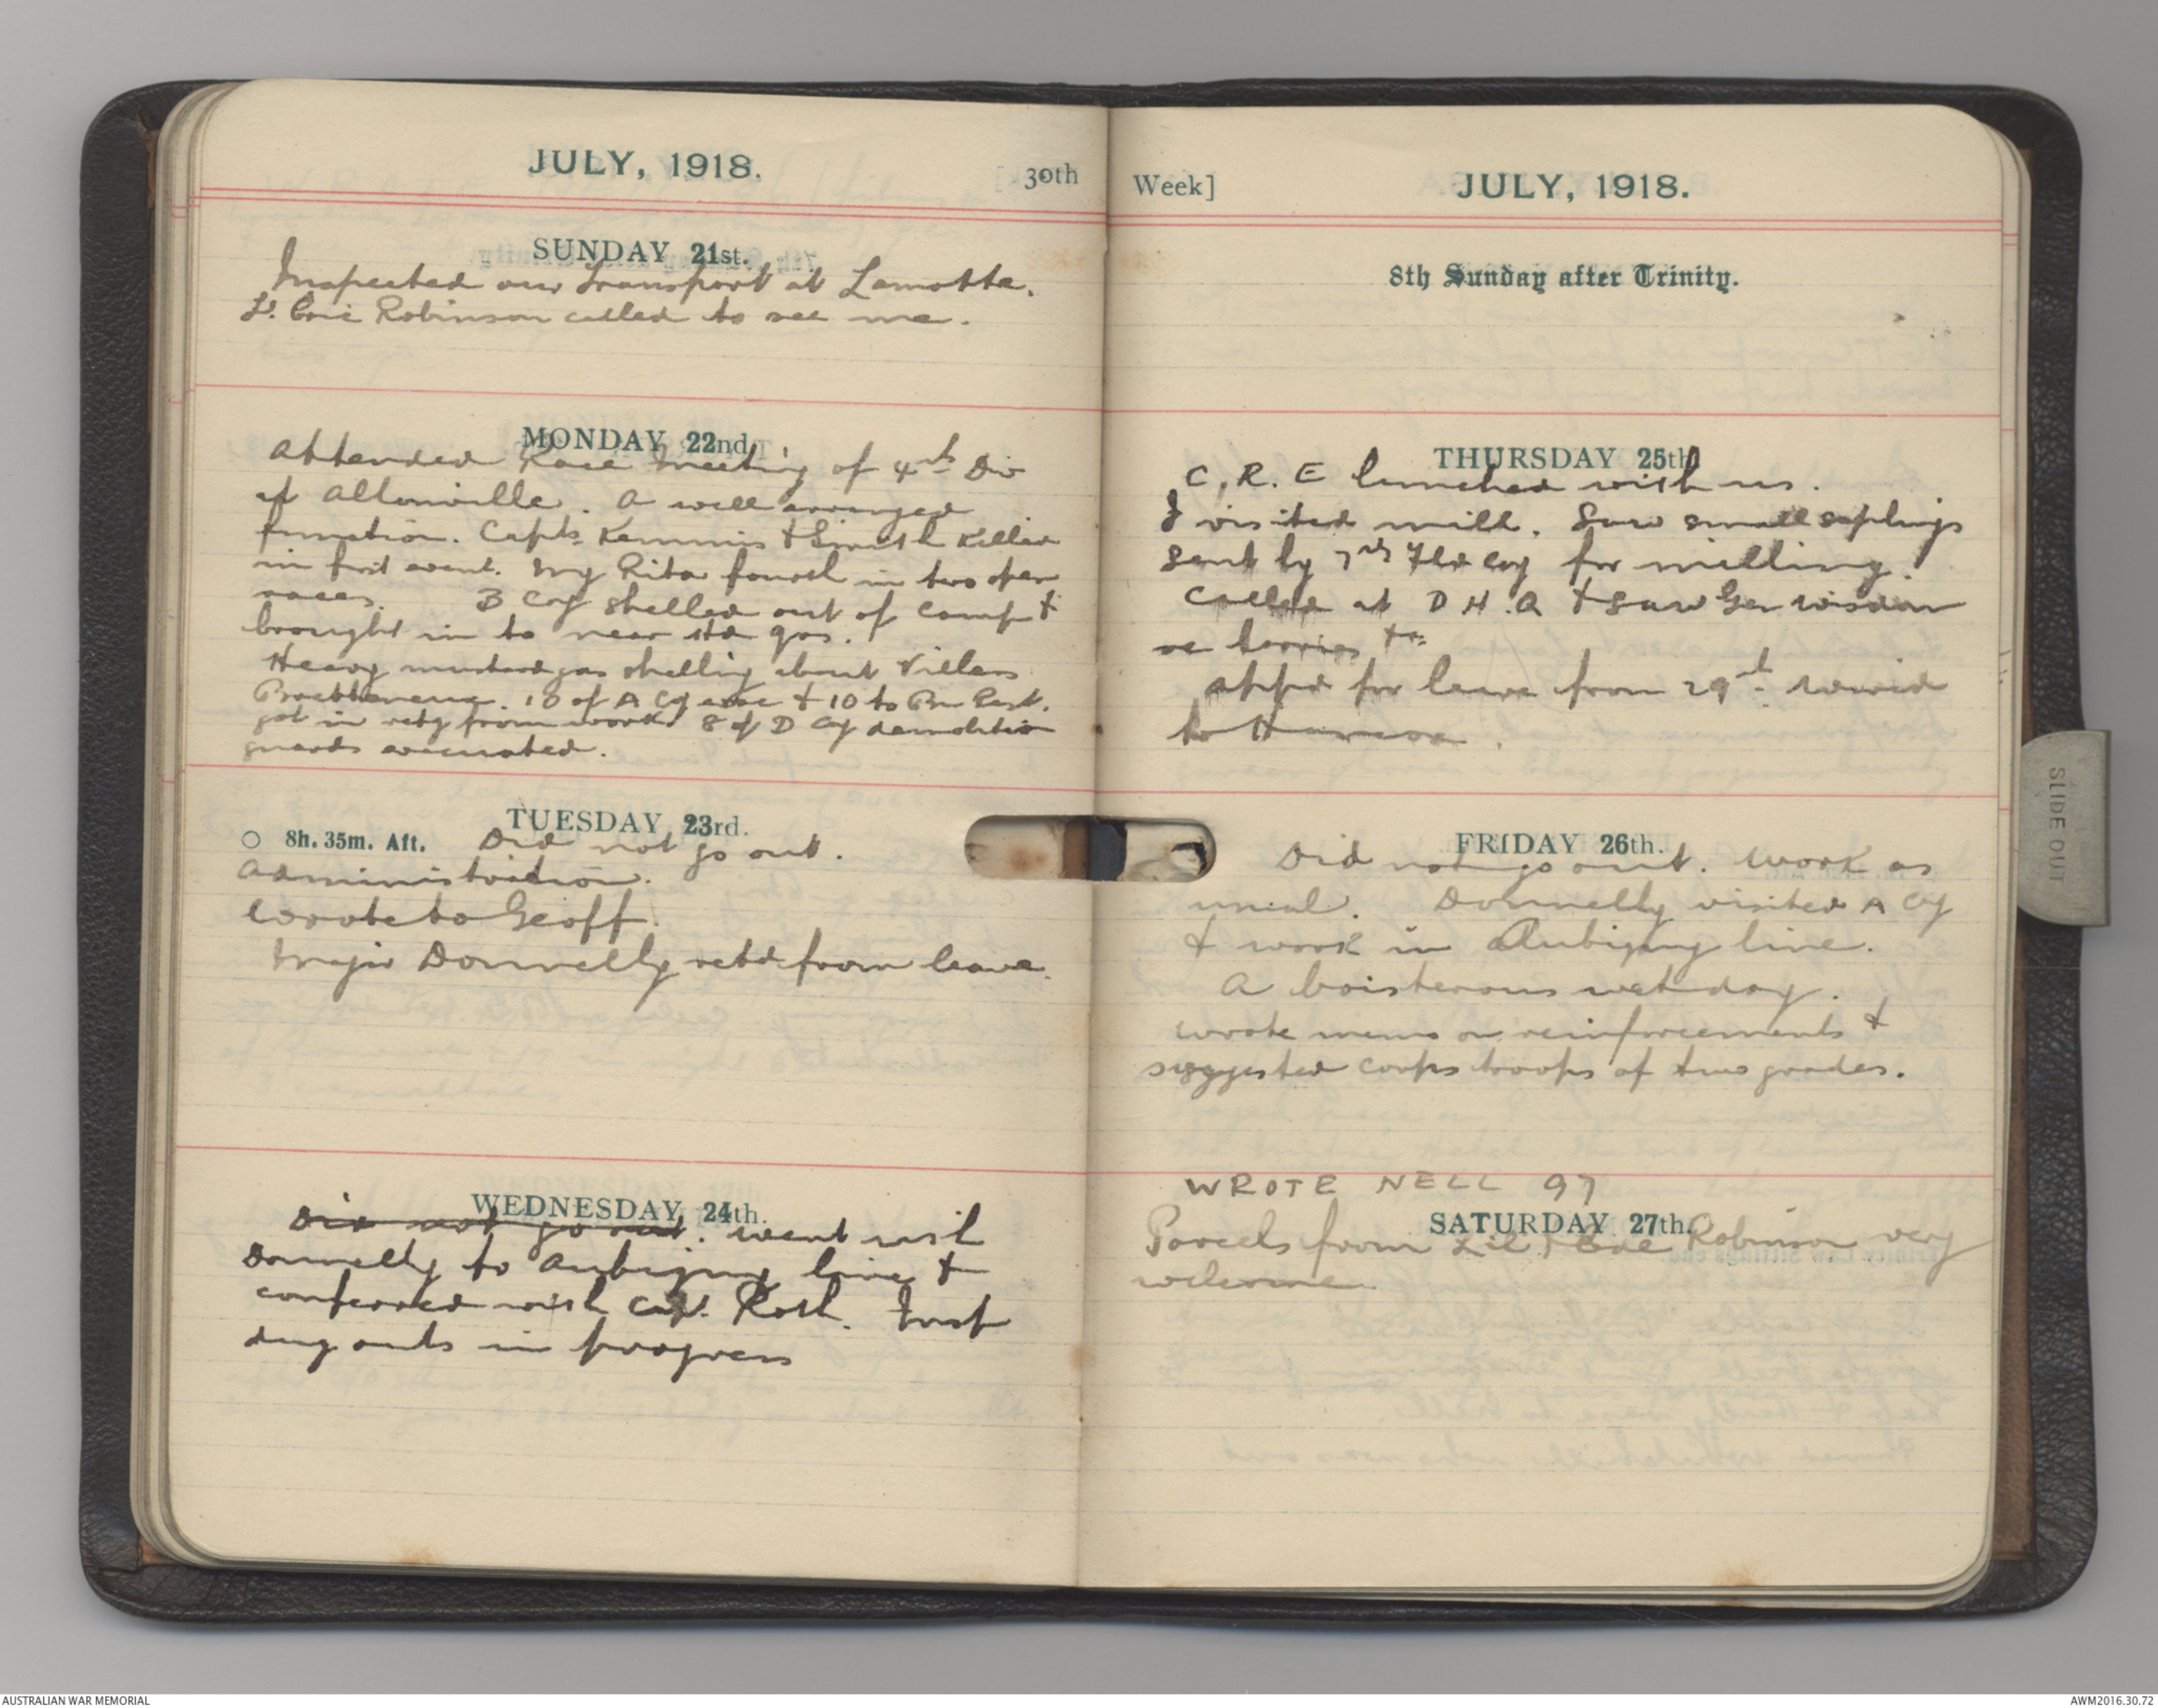 JULY, 1918.
[30th
SUNDAY 21st.
Inspected our transport at Lamotte.
Lt. Eric Robinson called to see me.
MONDAY 22nd.
Attended Race Meeting of 4th Div
at Allonville. A well arranged
function. Capts. Kemmis & Smith killed
in first event. My Rita fourth in two open
races. B Coy shelled out of camp &
brought in to near Hd qrs.
Heavy mustard gas shelling about Villers
Bretonneux. 18 of A Coy evac & 10 to Bn Rest.
got in retg from work. 8 of D Coy demolition
guards evacuated.
TUESDAY 23rd.
8h. 35m. Aft. Did not go out.
Administration.
Wrote to Geoff.
Major Donnelly retd from leave.
WEDNESDAY 24th.
Did not go out. Went with
Donnelly to Aubigny line &
conferred with Capt. Roth. First
dug outs in progress
Week]
JULY, 1918.
8th Sunday after Trinity.
THURSDAY 25th
C.R.E lunched with us.
I visited mill. Saw small saplings
sent by 7th Fld Coy for milling.
Called at D.H.Q & saw Gen Wisdom
re lorries &c
Applied for leave from 29th.
to
FRIDAY 26th.
Did not go out. Work as
usual. Donnelly visited A Coy
& work in Aubigny line.
A boisterous wet day.
Wrote memo on reinforcements &
suggested corps troops of two grades.
WROTE NELL 97
SATURDAY 27th.
Parcels from Lil & Robinson very
welcome
SLIDE OUT
AUSTRALIAN WAR MEMORIAL
AWM2016.30.72